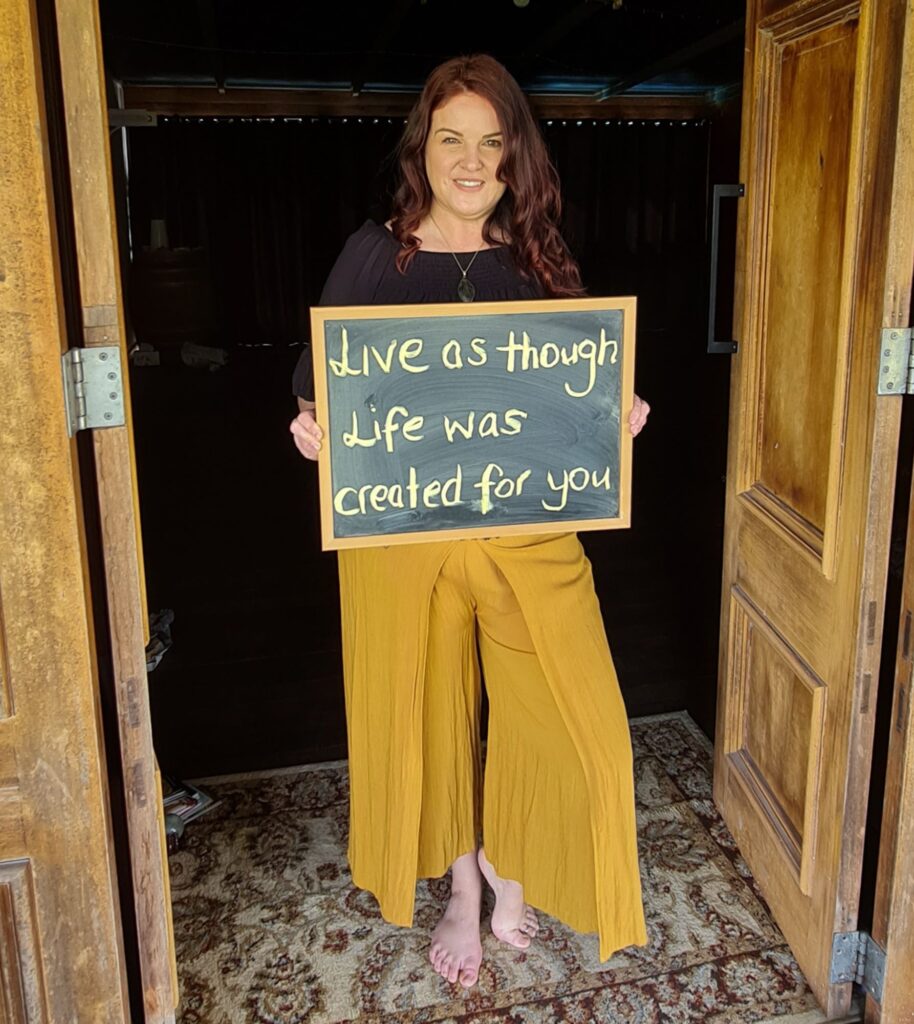 Live as though
Life was
created for you